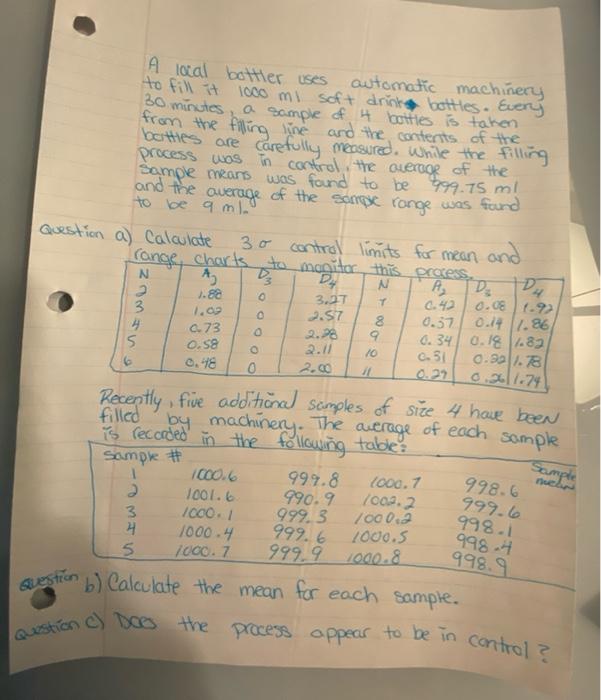 A local bottler uses automatic machinery
to fill it 1000 ml soft drink bottles. Every
30 minutes, a sample of 4 bottles is taken
from the filling line and the contents of the
bottles are carefully measured. While the filling
process was in control, the average of the
sample means was found to be 999.75 ml
and the average of the sample range was found
to be 9 ml.
Question a) Calculate 3 σ control limits for mean and
range charts to monitor this process.
N A2 D3 D4 N A2 D3 D4
2 1.88 0 3.27 7 0.42 0.08 1.92
3 1.02 0 2.57 8 0.37 0.14 1.86
4 0.73 0 2.28 9 0.34 0.18 1.82
5 0.58 0 2.11 10 0.31 0.22 1.78
6 0.48 0 2.00 11 0.29 0.26 1.74
Recently, five additional samples of size 4 have been
filled by machinery. The average of each sample
is recorded in the following table:
Sample # Sample mean
1 1000.6 999.8 1000.7 998.6
2 1001.6 990.9 1002.2 999.6
3 1000.1 999.3 1000.2 998.1
4 1000.4 999.6 1000.5 998.4
5 1000.7 999.9 1000.8 998.9
Question b) Calculate the mean for each sample.
Question c) Does the process appear to be in control?